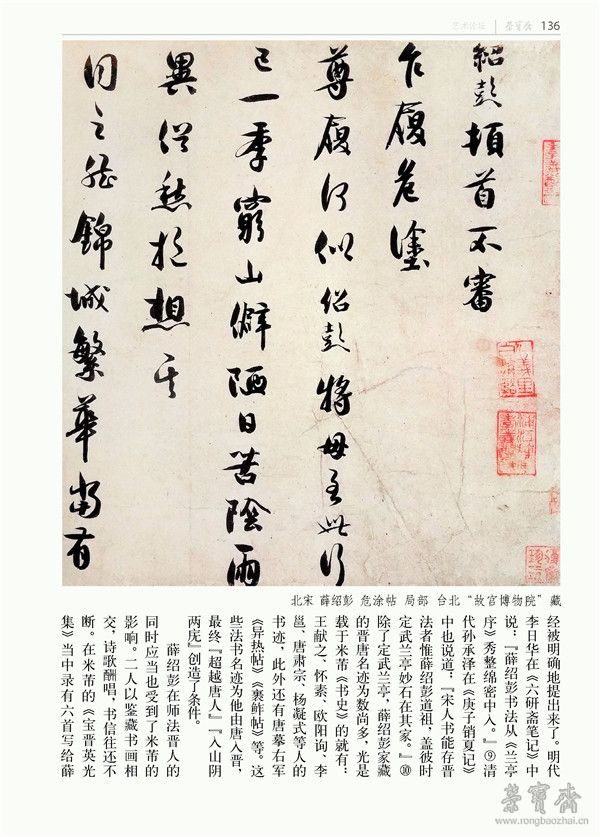 艺术论坛 荣宝斋 136
紹彭頓首不審
乍履危塗
尊履何似紹彭將毋至此行
已一季窮山僻陋日苦陰雨
異俗愁於想其
同之然錦城繁華當有
北宋 薛绍彭 危涂帖 局部 台北“故宫博物院”藏
经被明确地提出来了。明代
李日华在《六研斋笔记》中
说：『薛绍彭书法从《兰亭
序》秀整绵密中入。』⑨清
代孙承泽在《庚子销夏记》
中也说道：『宋人书能存晋
法者惟薛绍彭道祖，盖彼时
定武兰亭妙石在其家。』⑩
除了定武兰亭，薛绍彭家藏
的晋唐名迹为数尚多，光是
载于米芾《书史》的就有：
王献之、怀素、欧阳询、李
邕、唐肃宗、杨凝式等人的
书迹，此外还有唐摹右军
《异热帖》《裹鲊帖》等。这
些法书名迹为他由唐入晋，
最终『超越唐人』『入山阴
两庑』创造了条件。
薛绍彭在师法晋人的
同时应当也受到了米芾的
影响。二人以鉴藏书画相
交，诗歌酬唱，书信往还不
断。在米芾的《宝晋英光
集》当中录有六首写给薛
榮寶齋
www.rongbaozhai.cn